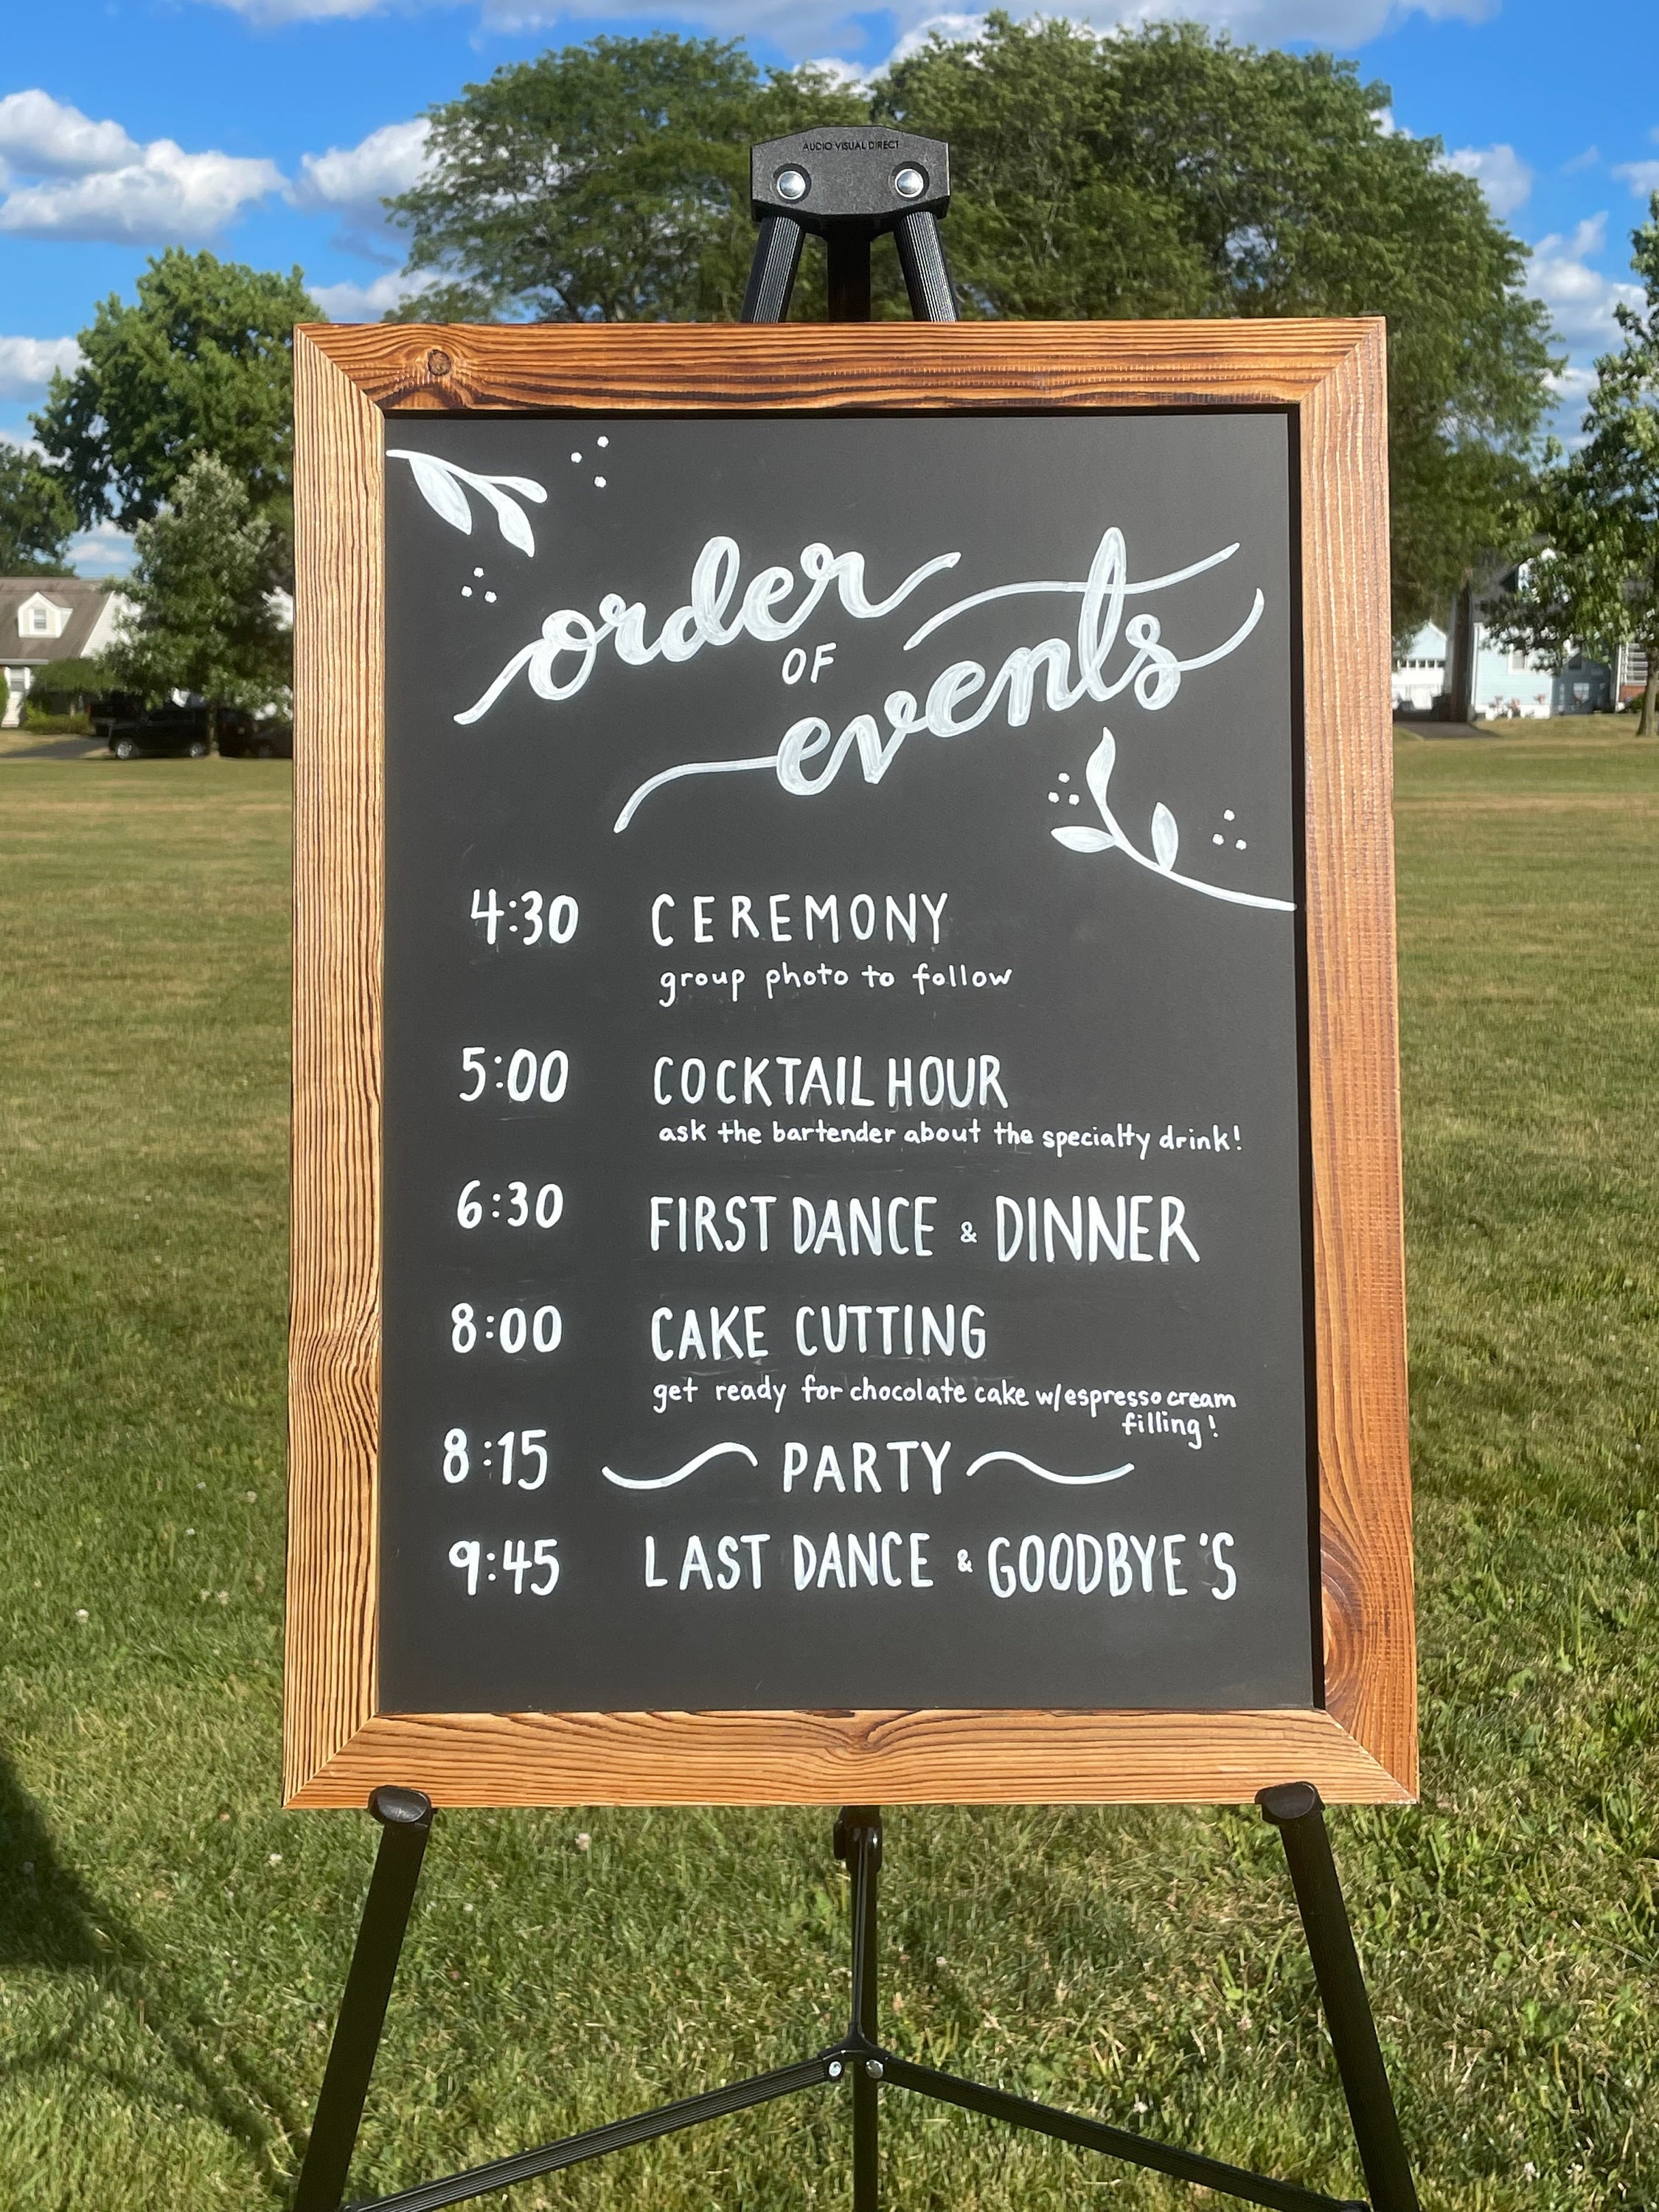 AUDIO VISUAL DIRECT
order
OF
events
4:30 CEREMONY
group photo to follow
5:00 COCKTAIL HOUR
ask the bartender about the specialty drink!
6:30 FIRST DANCE & DINNER
8:00 CAKE CUTTING
get ready for chocolate cake w/espresso cream
filling!
8:15 PARTY
9:45 LAST DANCE & GOODBYE'S